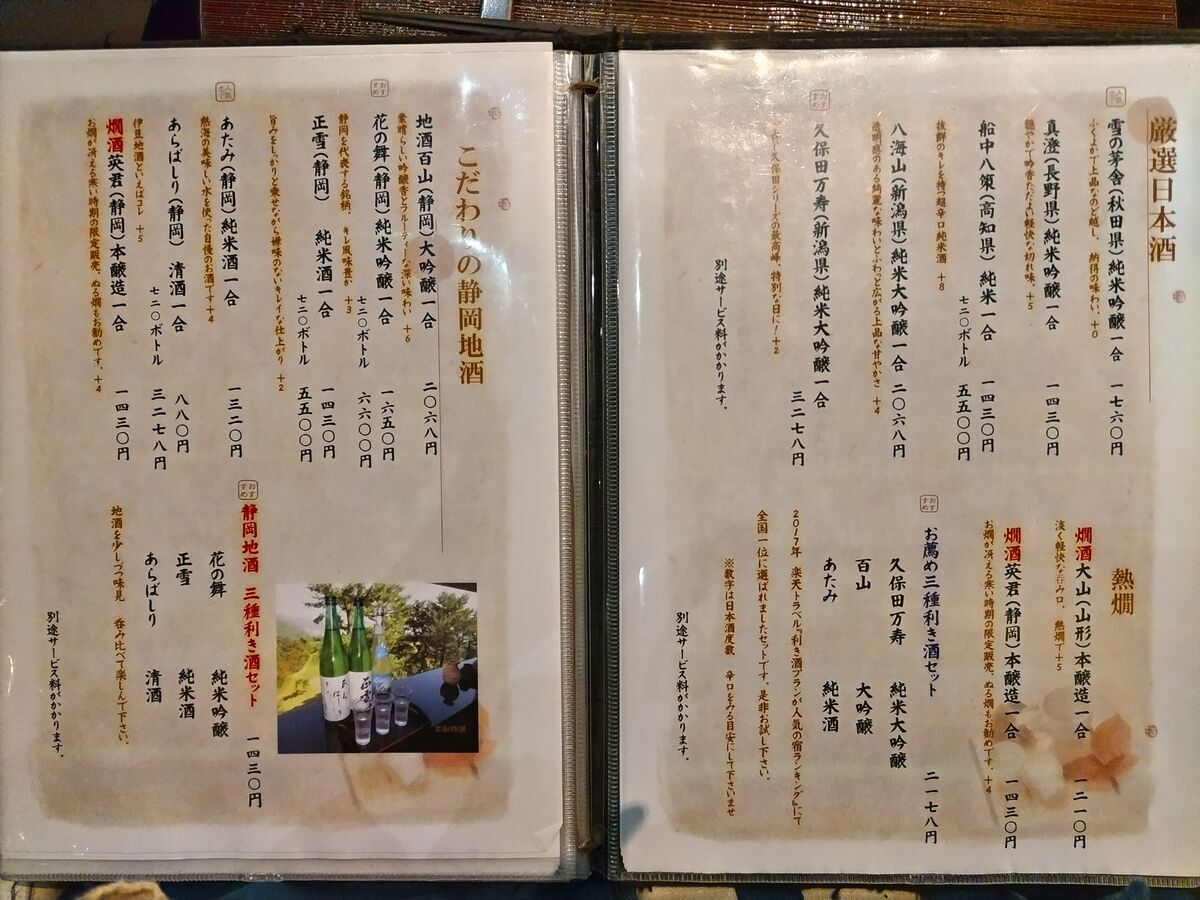 厳選日本酒
人気
雪の茅舎(秋田県)純米吟醸一合 一七六〇円
ふくよかで上品なのど越し、納得の味わい、+0
真澄(長野県)純米吟醸一合 一四三〇円
穏やかで吟香ただよい軽快な切れ味、+5
船中八策(高知県)純米一合 一四三〇円
七二〇ボトル 五五〇〇円
抜群のキレを持つ超辛口純米酒 +8
八海山(新潟県)純米大吟醸一合 二〇六八円
透明感のある綺麗な味わいとふわっと広がる上品な甘やかさ +4
おすすめ
久保田万寿(新潟県)純米大吟醸一合 三二七八円
久保田シリーズの最高峰、特別な日に!+2
別途サービス料がかかります。
熱燗
燗酒大山(山形)本醸造一合 一二一〇円
淡く軽快な呑み口、熱燗で+5
燗酒英君(静岡)本醸造一合 一四三〇円
お燗が冴える寒い時期の限定販売、ぬる燗もお勧めです、+4
おすすめ
お薦め三種利き酒セット 二一七八円
久保田万寿 純米大吟醸
百山 大吟醸
あたみ 純米酒
2017年 楽天トラベル『利き酒プランが人気の宿ランキング』にて
全国一位に選ばれましたセットです。是非お試し下さい。
※数字は日本酒度数 辛口をみる目安にして下さいませ
別途サービス料がかかります。
こだわりの静岡地酒
地酒百山(静岡)大吟醸一合 二〇六八円
素晴らしい吟醸香とフルーティーな深い味わい +6
おすすめ
花の舞(静岡)純米吟醸一合 一六五〇円
七二〇ボトル 六六〇〇円
静岡を代表する銘柄、キレ風味豊か +3
正雪(静岡) 純米酒一合 一四三〇円
七二〇ボトル 五五〇〇円
旨みをしっかりと乗せながら雑味のないキレイな仕上がり +2
あたみ(静岡)純米酒一合 一三二〇円
熱海の美味しい水を使った自慢のお酒です+4
あらばしり(静岡) 清酒一合 八八〇円
七二〇ボトル 三二七八円
伊豆地酒といえばコレ +5
燗酒英君(静岡)本醸造一合 一四三〇円
お燗が冴える寒い時期の限定販売、ぬる燗もお勧めです、+4
おすすめ
静岡地酒 三種利き酒セット 一四三〇円
花の舞 純米吟醸
正雪 純米酒
あらばしり 清酒
地酒を少しづつ味見 呑み比べて楽しんで下さい。
別途サービス料がかかります。